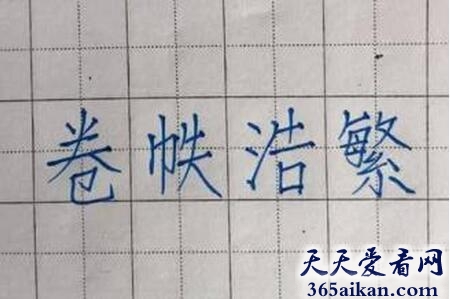 卷帙浩繁
天天爱看网
365aikan.com